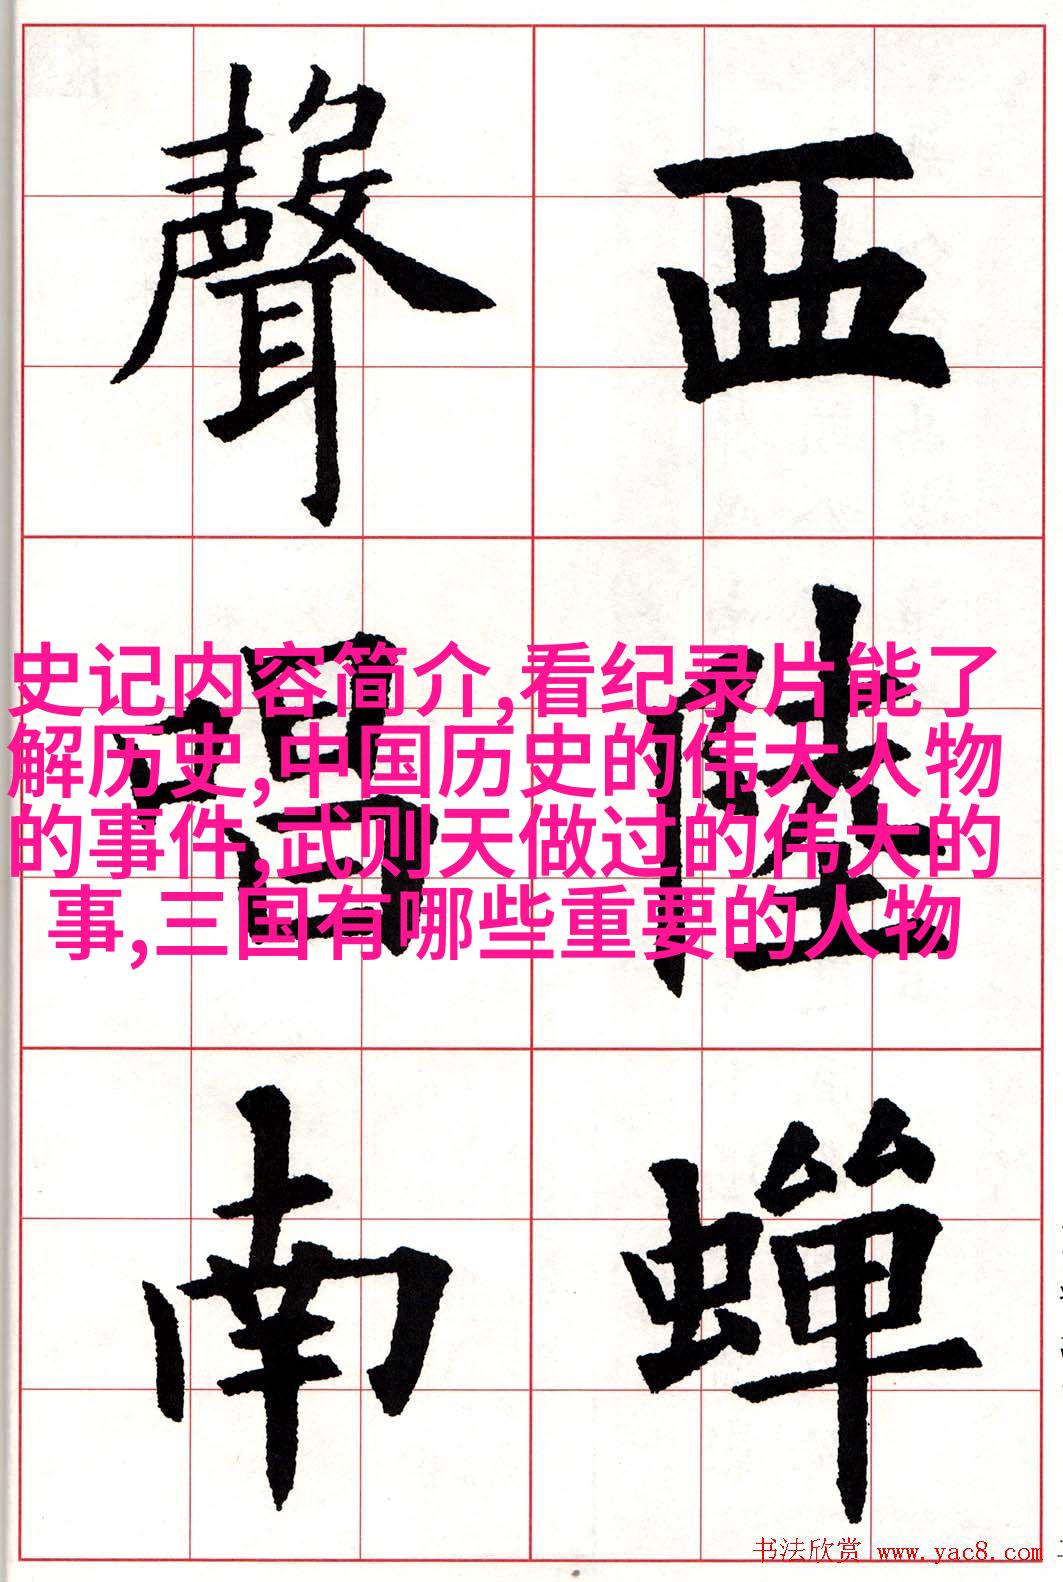 西陸蟬
聲唱南
史记内容简介,看纪录片能了
解历史,中国历史的伟大人物
的事件,武则天做过的伟大的
事,三国有哪些重要的人物
书法欣赏 www.yac8.com